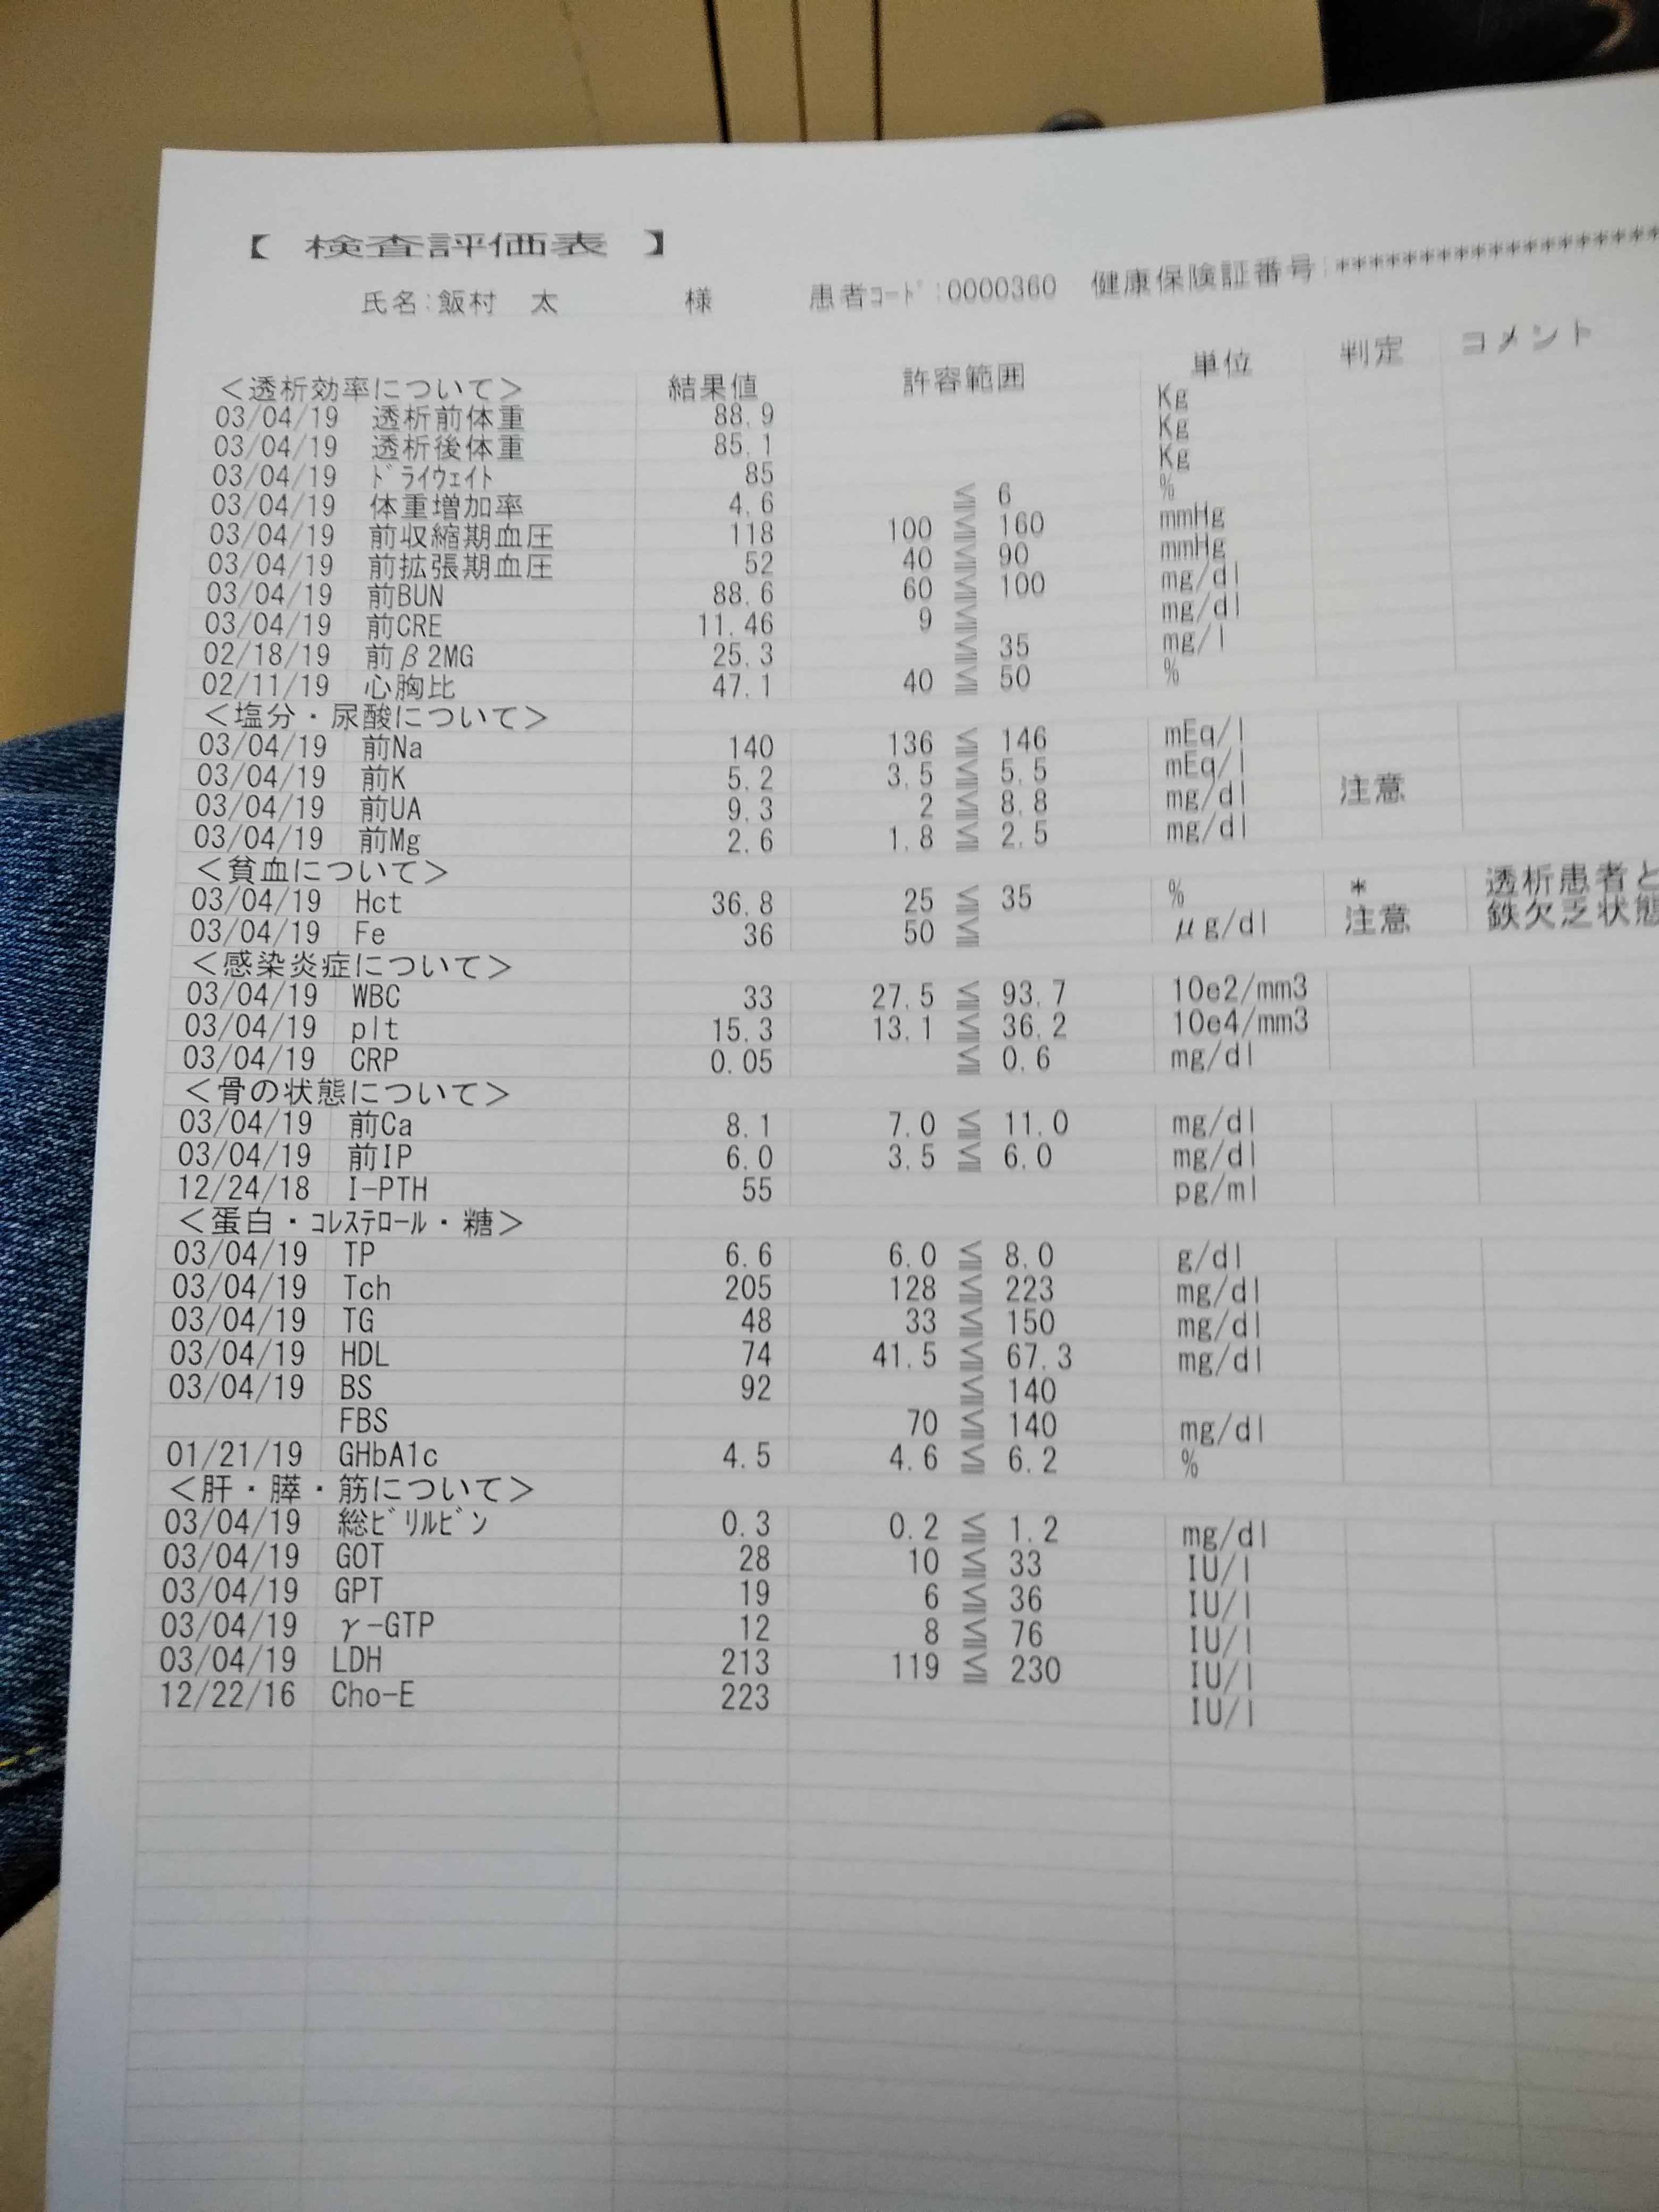 【 検査評価表 】
氏名:飯村 太 様 患者ｺｰﾄﾞ:0000360 健康保険証番号:*******************
＜透析効率について＞ 結果値 許容範囲 単位 判定 コメント
03/04/19 透析前体重 88.9 Kg
03/04/19 透析後体重 85.1 Kg
03/04/19 ﾄﾞﾗｲｳｪｲﾄ 85 Kg
03/04/19 体重増加率 4.6 ≦ 6 %
03/04/19 前収縮期血圧 118 100 ≦ 160 mmHg
03/04/19 前拡張期血圧 52 40 ≦ 90 mmHg
03/04/19 前BUN 88.6 60 ≦ 100 mg/dl
03/04/19 前CRE 11.46 9 ≦ mg/dl
02/18/19 前β2MG 25.3 ≦ 35 mg/l
02/11/19 心胸比 47.1 40 ≦ 50 %
＜塩分・尿酸について＞
03/04/19 前Na 140 136 ≦ 146 mEq/l
03/04/19 前K 5.2 3.5 ≦ 5.5 mEq/l
03/04/19 前UA 9.3 2 ≦ 8.8 mg/dl 注意
03/04/19 前Mg 2.6 1.8 ≦ 2.5 mg/dl
＜貧血について＞
03/04/19 Hct 36.8 25 ≦ 35 % * 透析患者と
03/04/19 Fe 36 50 ≦ μg/dl 注意 鉄欠乏状態
＜感染炎症について＞
03/04/19 WBC 33 27.5 ≦ 93.7 10e2/mm3
03/04/19 plt 15.3 13.1 ≦ 36.2 10e4/mm3
03/04/19 CRP 0.05 ≦ 0.6 mg/dl
＜骨の状態について＞
03/04/19 前Ca 8.1 7.0 ≦ 11.0 mg/dl
03/04/19 前IP 6.0 3.5 ≦ 6.0 mg/dl
12/24/18 I-PTH 55 pg/ml
＜蛋白・ｺﾚｽﾃﾛｰﾙ・糖＞
03/04/19 TP 6.6 6.0 ≦ 8.0 g/dl
03/04/19 Tch 205 128 ≦ 223 mg/dl
03/04/19 TG 48 33 ≦ 150 mg/dl
03/04/19 HDL 74 41.5 ≦ 67.3 mg/dl
03/04/19 BS 92 ≦ 140
FBS 70 ≦ 140 mg/dl
01/21/19 GHbA1c 4.5 4.6 ≦ 6.2 %
＜肝・膵・筋について＞
03/04/19 総ﾋﾞﾘﾙﾋﾞﾝ 0.3 0.2 ≦ 1.2 mg/dl
03/04/19 GOT 28 10 ≦ 33 IU/l
03/04/19 GPT 19 6 ≦ 36 IU/l
03/04/19 γ-GTP 12 8 ≦ 76 IU/l
03/04/19 LDH 213 119 ≦ 230 IU/l
12/22/16 Cho-E 223 IU/l